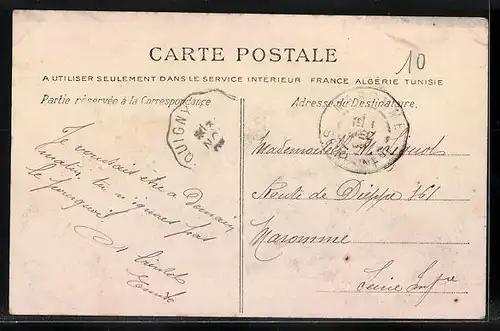 10
CARTE POSTALE
A UTILISER SEULEMENT DANS LE SERVICE INTÉRIEUR FRANCE ALGÉRIE TUNISIE
Partie réservée à la Correspondance
Adresse du Destinataire.
QUIGNY
Je voudrais être à Demain
matin, tu n'ignores pas
le pourquoi
A bientôt
Mademoiselle
Route de Dieppe 161
Maromme
Seine Infre